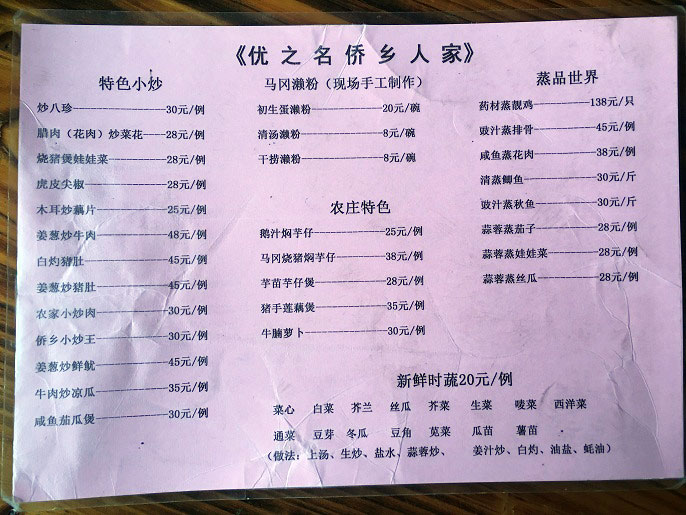 《优之名侨乡人家》
特色小炒
炒八珍————30元/例
腊肉（花肉）炒菜花——28元/例
烧猪煲娃娃菜————28元/例
虎皮尖椒————28元/例
木耳炒藕片————25元/例
姜葱炒牛肉————48元/例
白灼猪肚————45元/例
姜葱炒猪肚————45元/例
农家小炒肉————30元/例
侨乡小炒王————30元/例
姜葱炒鲜鱿————45元/例
牛肉炒凉瓜————35元/例
咸鱼茄瓜煲————30元/例
马冈濑粉（现场手工制作）
初生蛋濑粉————20元/碗
清汤濑粉————8元/碗
干捞濑粉————8元/碗
农庄特色
鹅汁焖芋仔————25元/例
马冈烧猪焖芋仔————38元/例
芋苗芋仔煲————28元/例
猪手莲藕煲————35元/例
牛腩萝卜————30元/例
蒸品世界
药材蒸靓鸡————138元/只
豉汁蒸排骨————45元/例
咸鱼蒸花肉————38元/例
清蒸鲫鱼————30元/斤
豉汁蒸秋鱼————30元/斤
蒜蓉蒸茄子————28元/例
蒜蓉蒸娃娃菜————28元/例
蒜蓉蒸丝瓜————28元/例
新鲜时蔬20元/例
菜心 白菜 芥兰 丝瓜 芥菜 生菜 唛菜 西洋菜
通菜 豆芽 冬瓜 豆角 苋菜 瓜苗 薯苗
（做法：上汤、生炒、盐水、蒜蓉炒、 姜汁炒、白灼、油盐、蚝油）